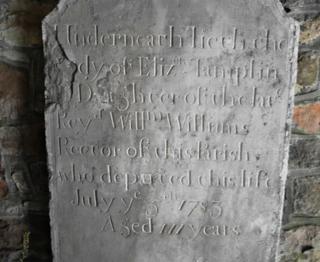 Underneath lieth the
ody of Eliz.th Tamplin
Daughter of the late
Rev.d Will.m Williams
Rector of this Parish.
who departed this life
July y.e 5.th 1783
Aged years